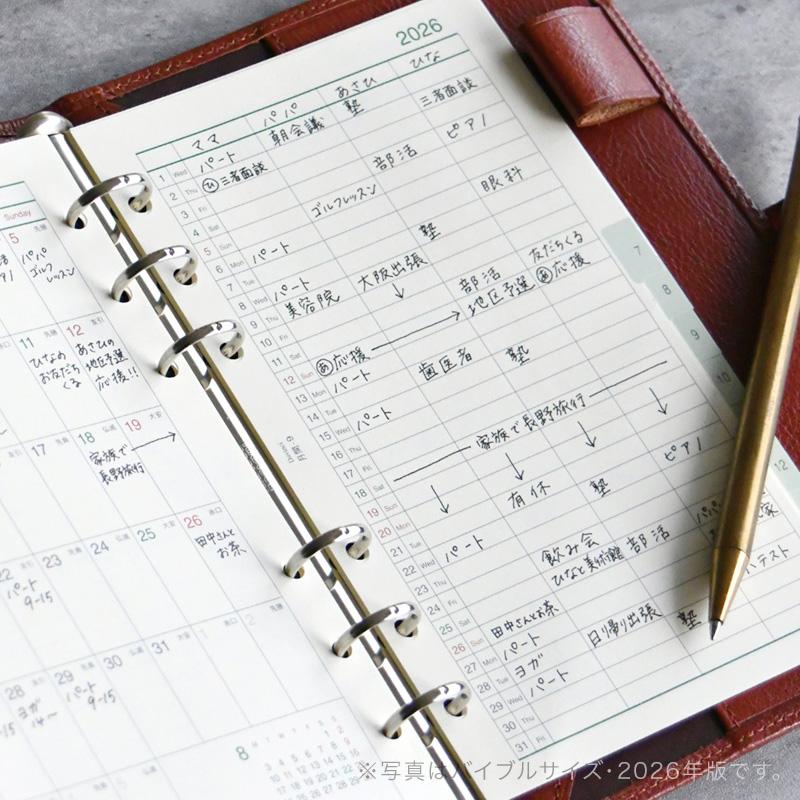 Sunday
5 先勝
パパ
ゴルフ
レッスン
11 先負
12 友引
ひなの
お友だち
くる
あさひの
地区予選
応援!!
17 先負
18 先負
19 大安
家族で
長野旅行
23
24
25 大安
26 赤口
田中さんと
お茶
22
パート
9-15
29
30
31
1
2
28
ヨガ
14~
パート
9-15
8
2026
ママ パパ あさひ ひな
1 Wed パート 朝会議 塾 三者面談
2 Thu ㋪三者面談
3 Fri 部活 ピアノ
4 Sat ゴルフレッスン
5 Sun 眼科
6 Mon パート 塾
7 Tue
8 Wed パート 大阪出張
9 Thu 美容院 ↓ 部活 友だちくる
10 Fri 地区予選 あ応援
11 Sat
12 Sun あ応援
13 Mon パート 歯医者 塾
14 Tue
15 Wed パート
16 Thu
17 Fri 家族で長野旅行
18 Sat
19 Sun ↓ ↓ ↓ ↓
20 Mon
21 Tue 有休 塾 ピアノ
22 Wed パート
23 Thu
24 Fri 飲み会 部活
25 Sat ひなと美術館
26 Sun 田中さんとお茶
27 Mon パート 日帰り出張 塾
28 Tue ヨガ
29 Wed パート
30 Thu
31 Fri
テスト
7
8
9
10
12
※写真はバイブルサイズ・2026年版です。